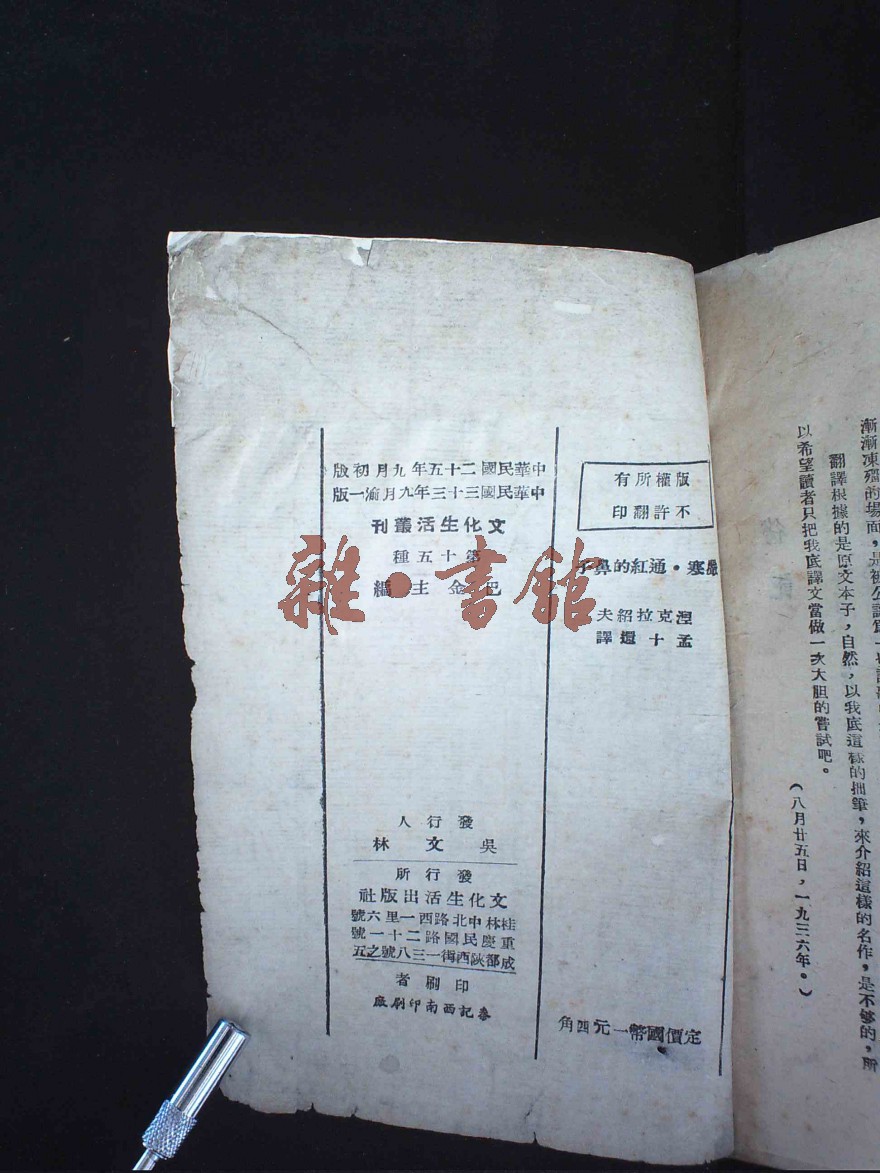 漸漸凍殭的場面，是被公認爲一
翻譯根據的是原文本子，自然，以我底這樣的拙筆，來介紹這樣的名作，是不够的，所
以希望讀者只把我底譯文當做一次大胆的嘗試吧。
（八月廿五日，一九三六年。）
版權所有
不許翻印
嚴寒・通紅的鼻子
涅克拉紹夫
孟十還譯
定價國幣一元四角
中華民國二十五年九月初版
中華民國三十三年九月渝一版
文化生活叢刊
第十五種
巴金主編
發行人
吳文林
發行所
文化生活出版社
桂林中北路西一里六號
重慶民國路二十一號
成都陝西街一三八號之五
印刷者
記西南印刷廠
雜・書館